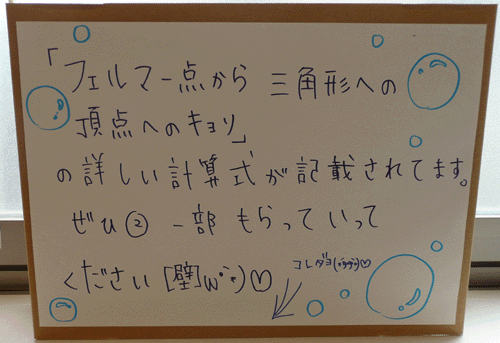 「フェルマー点から 三角形への
頂点へのキョリ」
の詳しい計算式が記載されてます。
ぜひ② 一部もらっていって
ください [壁]ω・*)♡
コレダヨ